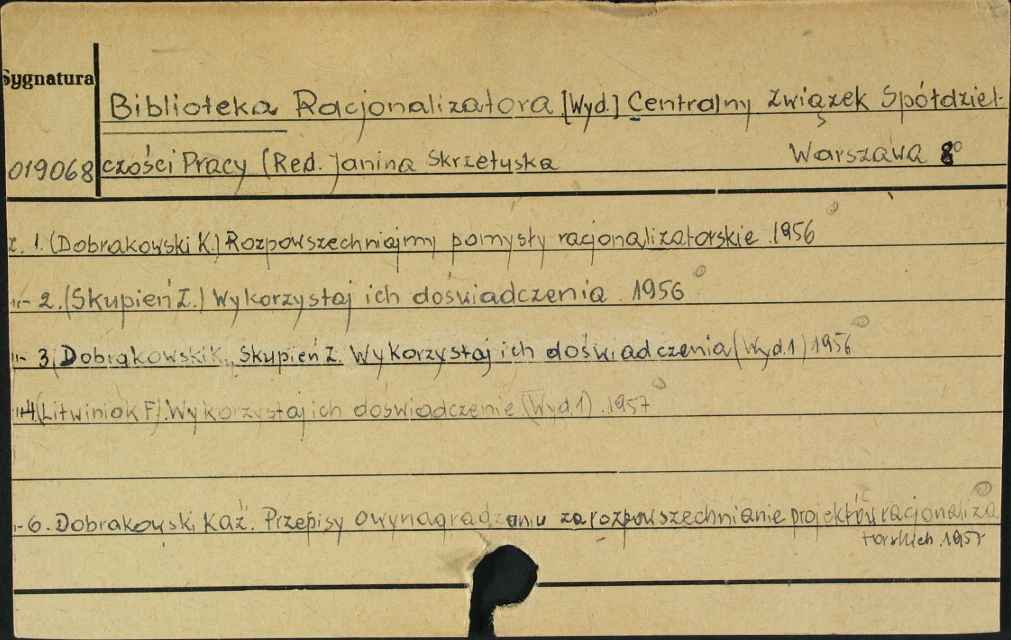 Sygnatura
Biblioteka Racjonalizatora [Wyd.] Centralny Związek Spółdziel-
019068 czości Pracy (Red. Janina Skrzetuska Warszawa 8°
z. 1. (Dobrakowski K.) Rozpowszechniajmy pomysły racjonalizatorskie. 1956
"- 2. (Skupień Z.) Wykorzystaj ich doświadczenia. 1956
"- 3. Dobrakowski K., Skupień Z. Wykorzystaj ich doświadczenia (Wyd.1) 1956
"-4 (Litwiniok F). Wykorzystaj ich doświadczenie (Wyd.1). 1957
"- 6. Dobrakowski Kaź. Przepisy o wynagradzaniu za rozpowszechnianie projektów racjonaliza
torskich. 1957